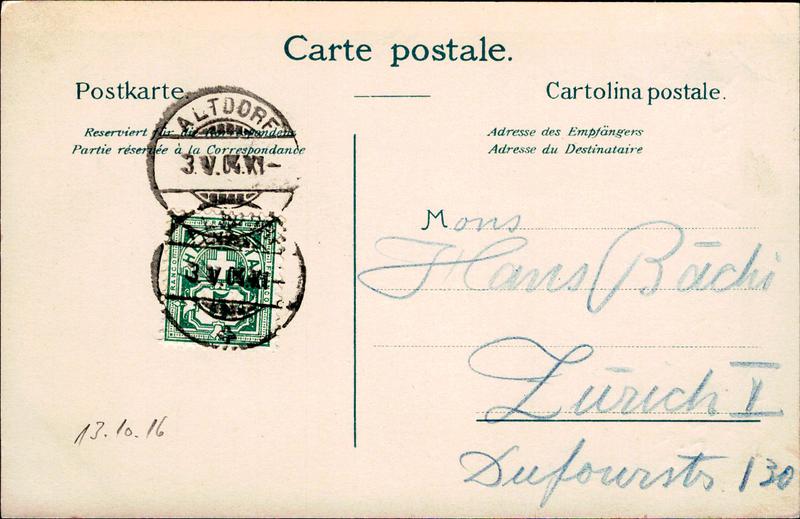 Carte postale.
Postkarte.
Cartolina postale.
Reserviert für die Correspondenz
Partie réservée à la Correspondance
Adresse des Empfängers
Adresse du Destinataire
ALTDORF
3.V.04.XI-
HELVETIA
FRANCO
3.V.04.XI-
5
Mons
Hans Bächi
Zürich V
Dufourstr 130
13.10.16